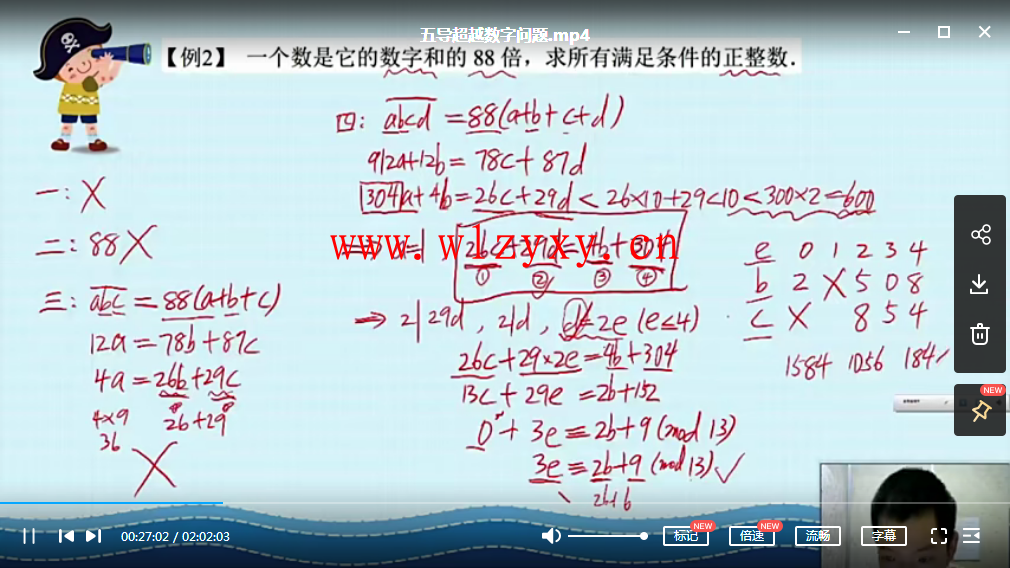 五导超越数字问题.mp4
【例2】 一个数是它的数字和的 88 倍，求所有满足条件的正整数．
四: abcd = 88(a+b+c+d)
912a+12b = 78c+87d
304a+4b = 26c+29d < 26×10+29×10 < 300×2 = 600
一: X
www.wlzyxy.cn
⇒ a=1 26c+29d = 4b+304
① ② ③ ④
二: 88 X
三: abc = 88(a+b+c)
12a = 78b+87c
4a = 26b+29c
4×9 26+29
36
X
⇒ 2|29d , 2|d , d=2e (e≤4)
26c+29×2e = 4b+304
13c+29e = 2b+152
0+3e ≡ 2b+9 (mod 13)
3e ≡ 2b+9 (mod 13) ✓
e 0 1 2 3 4
b 2 X 5 0 8
c X 8 5 4
1584 1056
NEW
00:27:02 / 02:02:03
标记
NEW
倍速
NEW
流畅
字幕